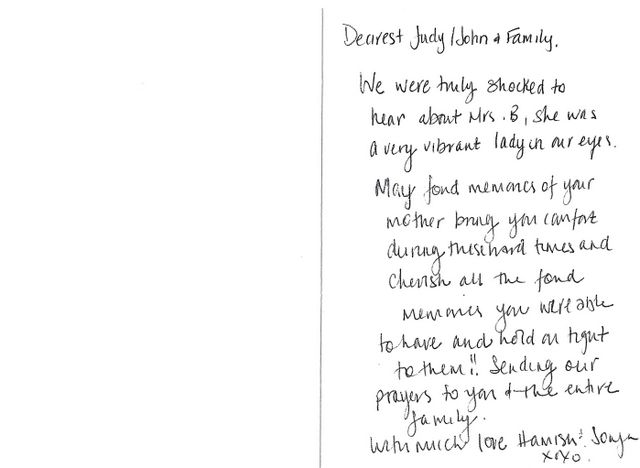 Dearest Judy/John & Family,
We were truly shocked to
hear about Mrs. B, she was
a very vibrant lady in our eyes.
May fond memories of your
mother bring you comfort
during these hard times and
cherish all the fond
memories you were able
to have and hold on tight
to them!! Sending our
prayers to you & the entire
family.
With much love Hamish & Sonya
xoxo.